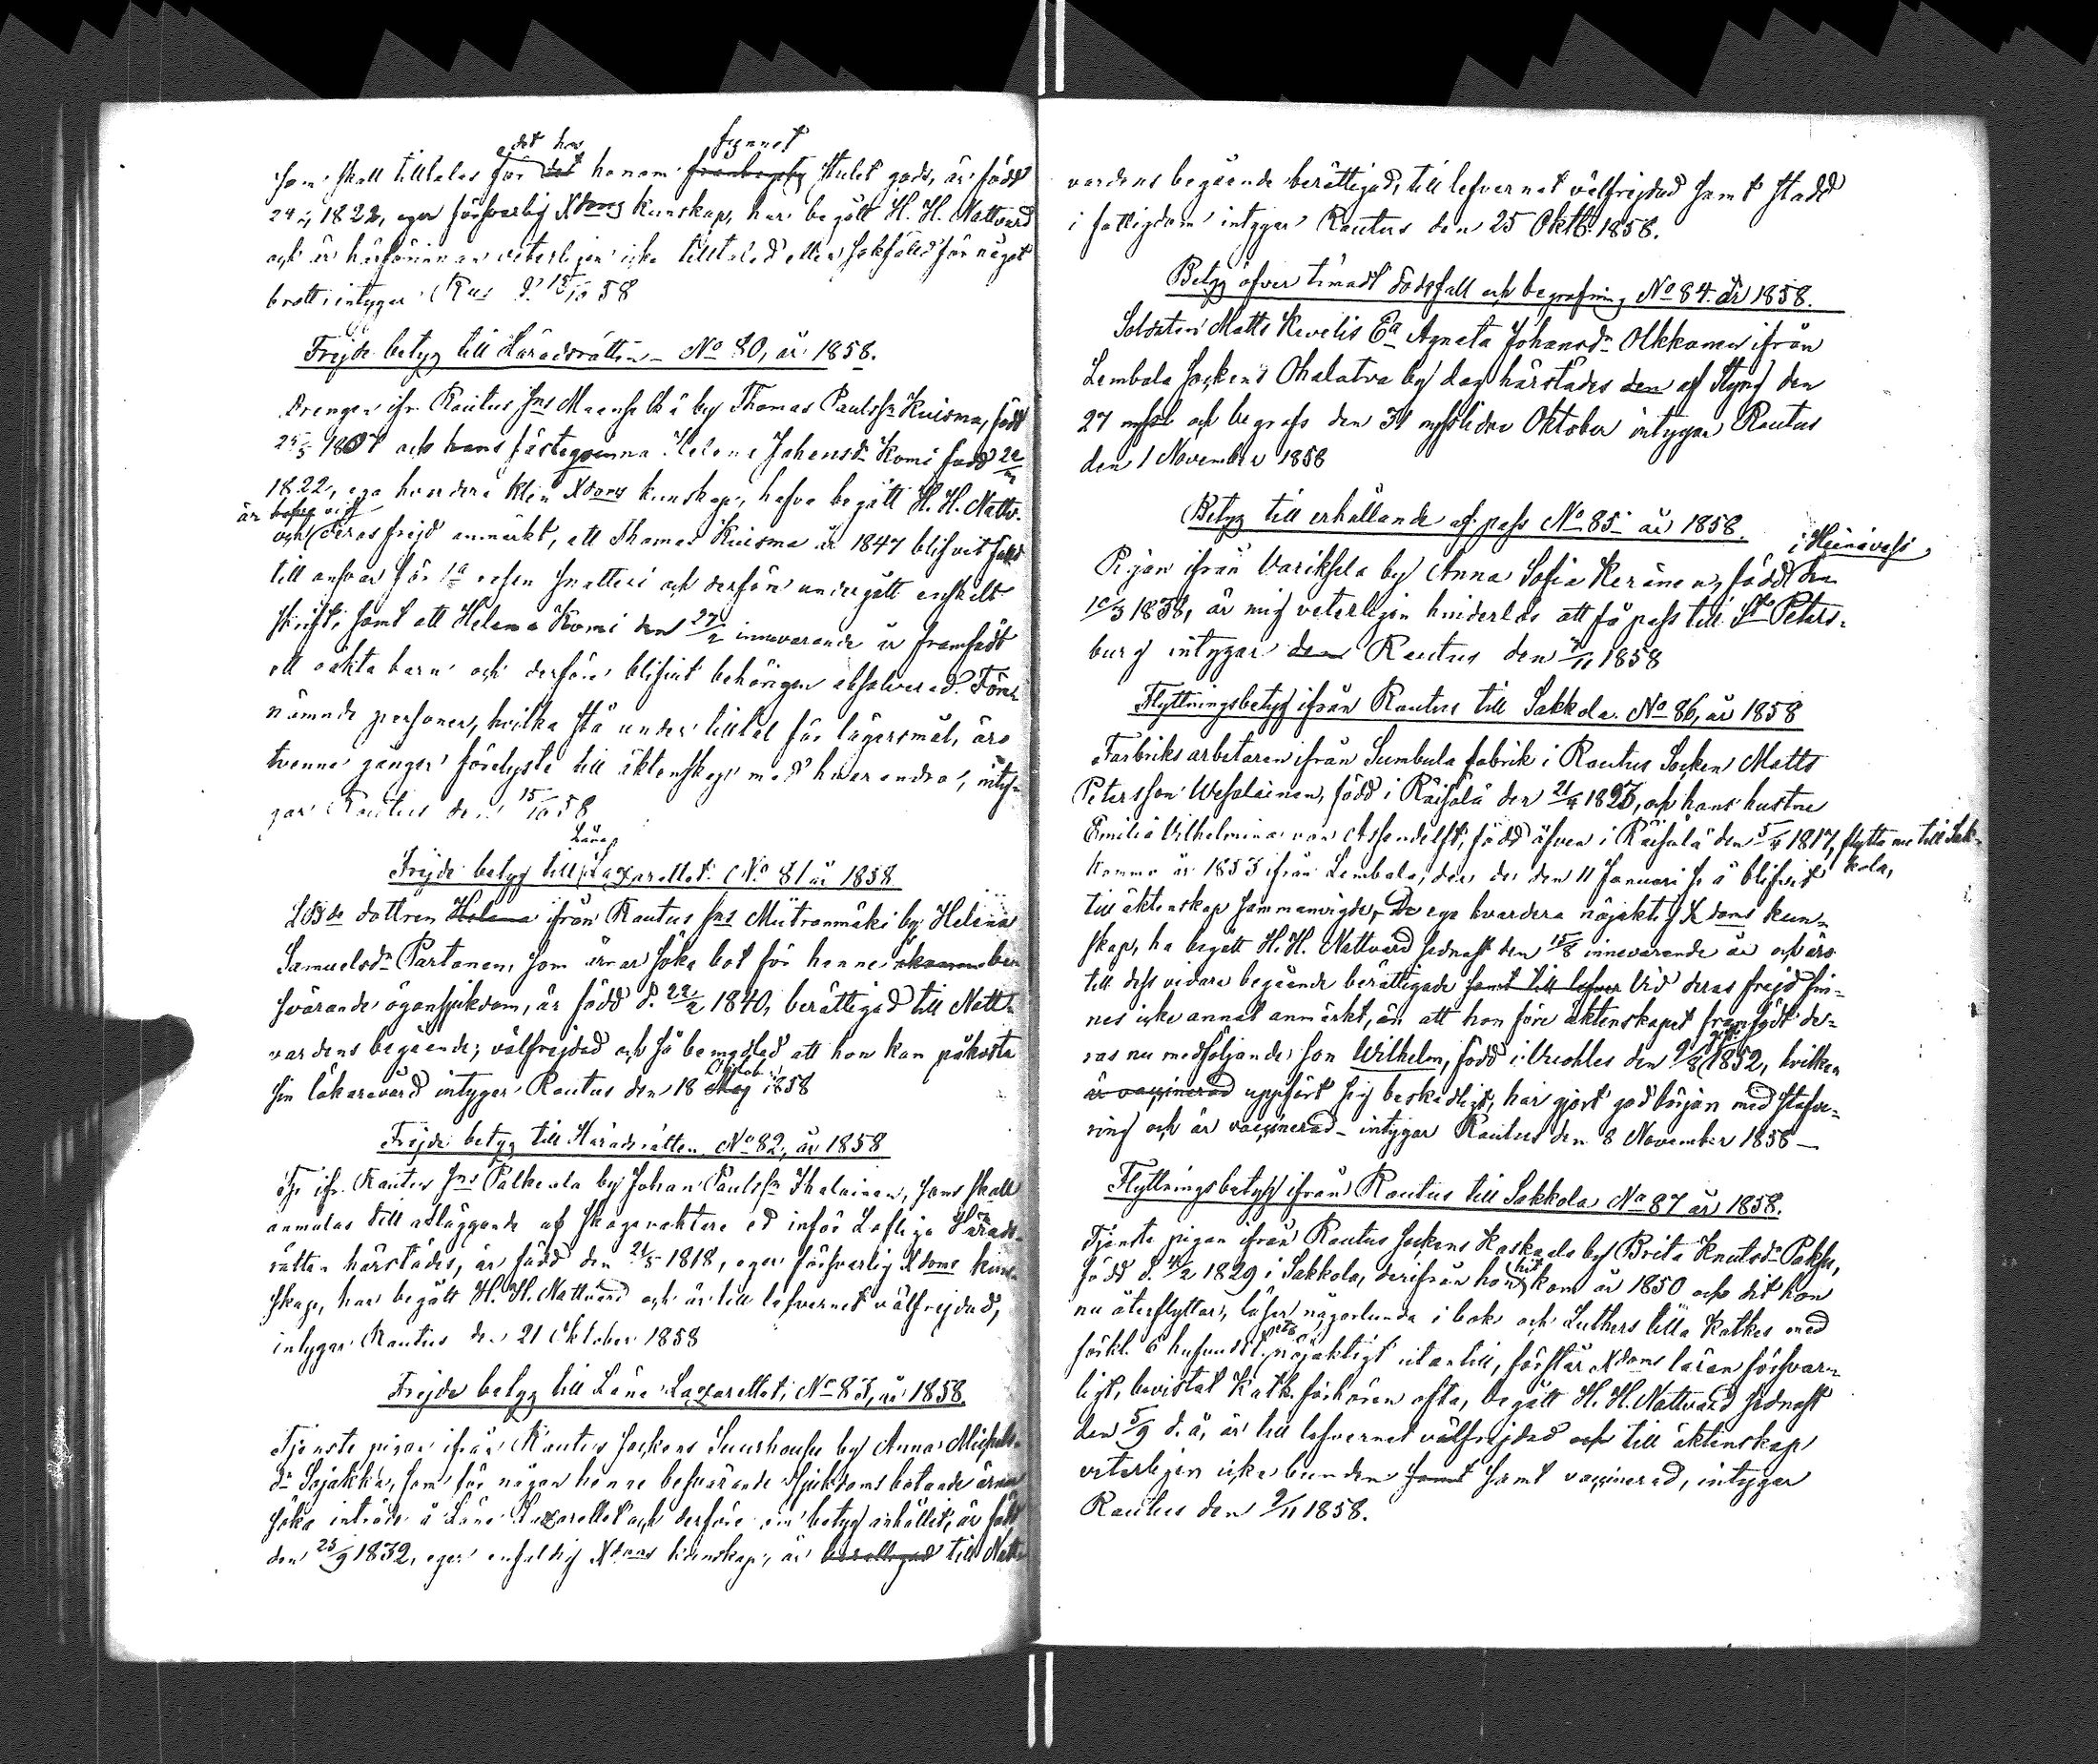 det hos funnet
som skall tilltalas för det honom stulet gods, är född
1822, eger försvarlig Xdoms kunskap, har begått H. H. Nattvard
och är härförinnan veterligen icke tilltalad eller sakfälld för något
brott, intygar Rus d. 15/10 58
Frejde betyg till Häradsrätten No 80, år 1858.
Drengen ifr. Rautus Sns Maanselkä by Thomas Paulssn Kuisma, född
1807 och hans fästeqvinna Helena Johansdr Komi född 22
1822, ega hvardera klen Xdoms kunskap, hafva begått H. H. Nattv.
är vid
och deras frejd anmärkt, att Thomas Kuisma år 1847 blifvit fälld
till ansvar för 1a resan snatteri och derföre undergått enskilt
skrift, samt att Helena Komi den 27/2 innevarande år framfödt
ett oäkta barn och derföre blifvit behörigen absolverad. Före-
nämnde personer, hvilka stå under tilltal för lägersmål, äro
tvenne gånger förelyste till äktenskap med hvarandra, inty-
gar Rautus den 15/10 58
Läns
Frejde betyg till Lazarettet No 81 år 1858
Lösde dottren Helena ifrån Rautus Sns Mütronmäki by Helena
Samuelsdr Partanen, som ärnar söka bot för henne be-
svärande ögonsjukdom, är född d. 22/2 1840, berättigad till Natt-
vardens begående, välfrejdad och så bemedlad att hon kan påkosta
Oktober
sin läkarevård intygar Rautus den 18 1858
Frejde betyg till Häradsrätten No 82, år 1858
ifr. Rautus Sns Palkeala by Johan Paulssn Ihalainen, som skall
anmälas till afläggande af skogvaktare ed inför Lofliga Härads-
rätten härstädes, är född den 21/5 1818, eger försvarlig Xdoms kun-
skap, har begått H. H. Nattvard och är till lefvernet välfrejdad,
intygar Rautus den 21 Oktober 1858
Frejde betyg till Läns Lazarettet, No 83, år 1858.
Tjenste pigan ifrån Rautus Sockens Suurhousu by Anna Michels-
dr Sojakka, som för någon henne besvärande sjukdoms botande ärnar
söka inträde å Läns Lazarettet och derföre om betyg anhållit, är född
den 25/9 1832, eger enfaldig Xdoms kunskap, är berättigad till Natt-
vardens begående berättigad, till lefvernet välfrejdad samt stadd
i fattigdom intygar Rautus den 25 Oktb. 1858.
Betyg öfver timadt dödsfall och begrafning No 84 år 1858.
Soldaten Matts Kevelis Ea Agneta Johansdr Olkkonen ifrån
Lembala Sockens Ohalatva by dog härstädes den af styng den
27 och begrofs den 31 Oktober intygar Rautus
den 1 November 1858
Betyg till erhållande af pass No 85 år 1858.
i Heinävesi
Pigan ifrån Variksela by Anna Sofia Keränen, född den
10/3 1838, är mig veterligen hinderlös att få pass till St Peters-
burg intygar den Rautus den 1858
Flyttningsbetyg ifrån Rautus till Sakkola. No 86, år 1858
Fabriks arbetaren ifrån Sumbula fabrik i Rautus Socken Matts
Petersson Wesalainen, född i Räisälä den 21/9 1823, och hans hustru
Emilia Vilhelmina von Assendelft, född äfven i Räisälä den 1817, flytta nu till Sak-
komma år 1853 ifrån Lembala, der de den 11 Januari s. å. blifvit kola,
till äktenskap sammanvigde, De ega hvardera nöjaktig Xdoms kun-
skap, ha begått H. H. Nattvard sednast den 15/8 innevarande år och äro
till dess vidare begående berättigade samt till lefver Vid deras frejd fin-
nes icke annat anmärkt, än att hon före äktenskapet framfödt de-
ras nu medföljande son Wilhelm, född i Uuskles den 9/8 1852, hvilken
är vaccinerad uppfört sig beskedligt, har gjort god början med stafve-
ring och är vaccinerad - intygar Rautus den 8 November 1858 -
Flyttningsbetyg ifrån Rautus till Sakkola No 87 år 1858.
Tjenste pigan ifrån Rautus Sockens Kaskaala by Brita Knutsdr Paksu,
hit
född d. 1829 i Sakkola, derifrån hon kom år 1850 och dit hon
nu återflyttar, läser någorlunda i bok och Luthers lilla Katkes med
förkl. 6 hufvudst. nöjaktigt utantill, förstår Xdoms läran försvar-
ligt, bevistat Katk. förhören ofta, begått H. H. Nattvard sednast
den 5/9 d. å, är till lefvernet välfrejdad och till äktenskap
veterligen icke bunden samt samt vaccinerad, intygar
Rautus den 9/11 1858.